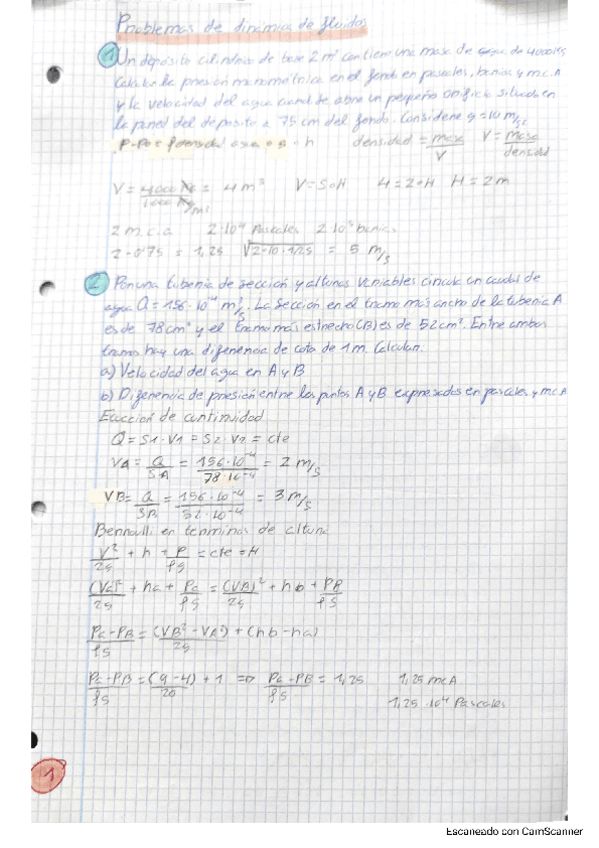 Problemas de dinámica de fluidos
① Un depósito cilíndrico de base 2 m² contiene una masa de agua de 4000 kg
Calcular la presión manométrica en el fondo en pascales, barias y m.c.A
y la velocidad del agua cuando se abre un pequeño orificio situado en
la pared del deposito a 75 cm del fondo. Considere g = 10 m/s²
P-P0 = densidad agua · g · h densidad = masa/V V = masa/densidad
V = 4000 Kg/1000 Kg/m³ = 4 m³ V = S·H 4 = 2·H H = 2m
2 m.c.a 2·10⁴ Pascales 2·10⁵ barias
2 - 0'75 = 1,25 √2·10·1,25 = 5 m/s
② Por una tubería de sección y alturas variables circula un caudal de
agua Q = 156·10⁻⁴ m³/s. La sección en el tramo más ancho de la tubería A
es de 78 cm² y el tramo más estrecho (B) es de 52 cm². Entre ambos
tramos hay una diferencia de cota de 1 m. Calcular.
a) Velocidad del agua en A y B
b) Diferencia de presión entre los puntos A y B expresados en pascales y m.c.A
Ecuación de continuidad
Q = S1·V1 = S2·V2 = cte
VA = Q/SA = 156·10⁻⁴/78·10⁻⁴ = 2 m/s
VB = Q/SB = 156·10⁻⁴/52·10⁻⁴ = 3 m/s
Bernoulli en terminos de altura
V²/2g + h + P/ρg = cte = H
(Va)²/2g + ha + Pa/ρg = (VB)²/2g + hb + PB/ρg
Pa-PB/ρg = (VB² - VA²)/2g + (hb - ha)
Pa-PB/ρg = (9-4)/20 + 1 => Pa-PB/ρg = 1,25 1,25 mcA
1,25·10⁴ Pascales
1
Escaneado con CamScanner